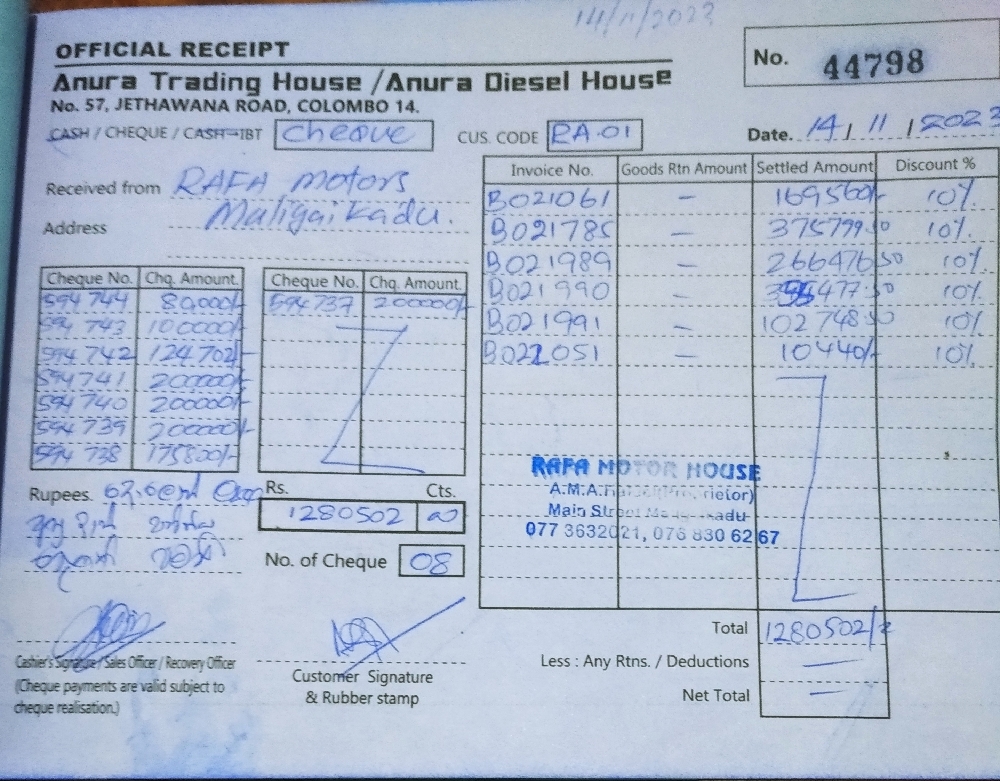 14/11/2023
OFFICIAL RECEIPT
No. 44798
Anura Trading House /Anura Diesel House
No. 57, JETHAWANA ROAD, COLOMBO 14.
CASH / CHEQUE / CASH-IBT cheque CUS. CODE RA-01 Date. 14/11/2023
Received from RAFA motors
Address Maligaikadu.
Invoice No. Goods Rtn Amount Settled Amount Discount %
B021061 — 169560/- 10%
B021785 — 375799.50 10%.
B021989 — 266476 50 10%.
B021990 — 10%
B021991 — 102748.50 10%
B022051 — 10440/- 10%
Cheque No. Chq. Amount. Cheque No. Chq. Amount.
594 744 80,000/- 594 737 200000/-
594 743 100000/-
594 742 124702/-
594 741 200000/-
594 740 200000/-
594 739 200000/-
594 738 175800/-
RAFA MOTOR HOUSE
A.M.A.
Main Street
077 3632021, 076 830 62 67
Rupees. Rs. Cts.
1280502
No. of Cheque 08
Total 1280502/
Less : Any Rtns. / Deductions —
Net Total —
Cashier's Signature / Sales Officer / Recovery Officer
(Cheque payments are valid subject to
cheque realisation.)
Customer Signature
& Rubber stamp